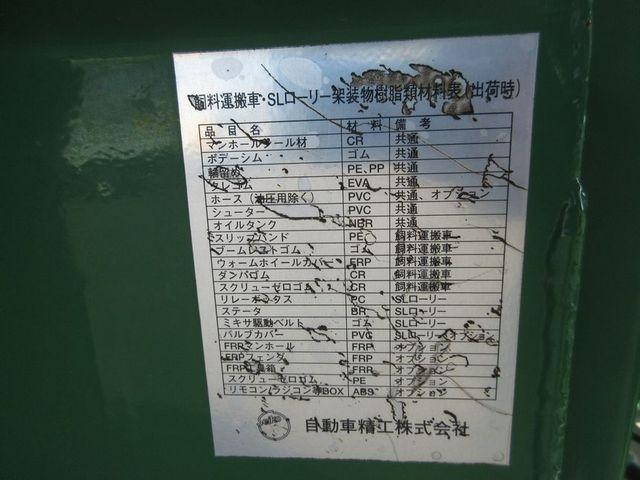 飼料運搬車・SLローリー架装物樹脂類材料表（出荷時）
品目名 材料 備考
マンホールシール材 CR 共通
ボデーシム ゴム 共通
輪留め PE、PP 共通
タレゴム EVA 共通
ホース（油圧用除く） PVC 共通、オプション
シューター PVC 共通
オイルタンク NBR 共通
スリップバンド PE 飼料運搬車
ブームレストゴム ゴム 飼料運搬車
ウォームホイールカバー FRP 飼料運搬車
ダンパゴム CR 飼料運搬車
スクリューゼロゴム CR 飼料運搬車
リレーボックス PC SLローリー
ステータ BR SLローリー
ミキサ駆動ベルト ゴム SLローリー
バルブカバー PVC SLローリーオプション
FRPマンホール FRP オプション
FRPフェンダ FRP オプション
FRP工具箱 FRP オプション
スクリューゼロゴム PE オプション
リモコン(ラジコン等)BOX ABS オプション
自動車精工株式会社